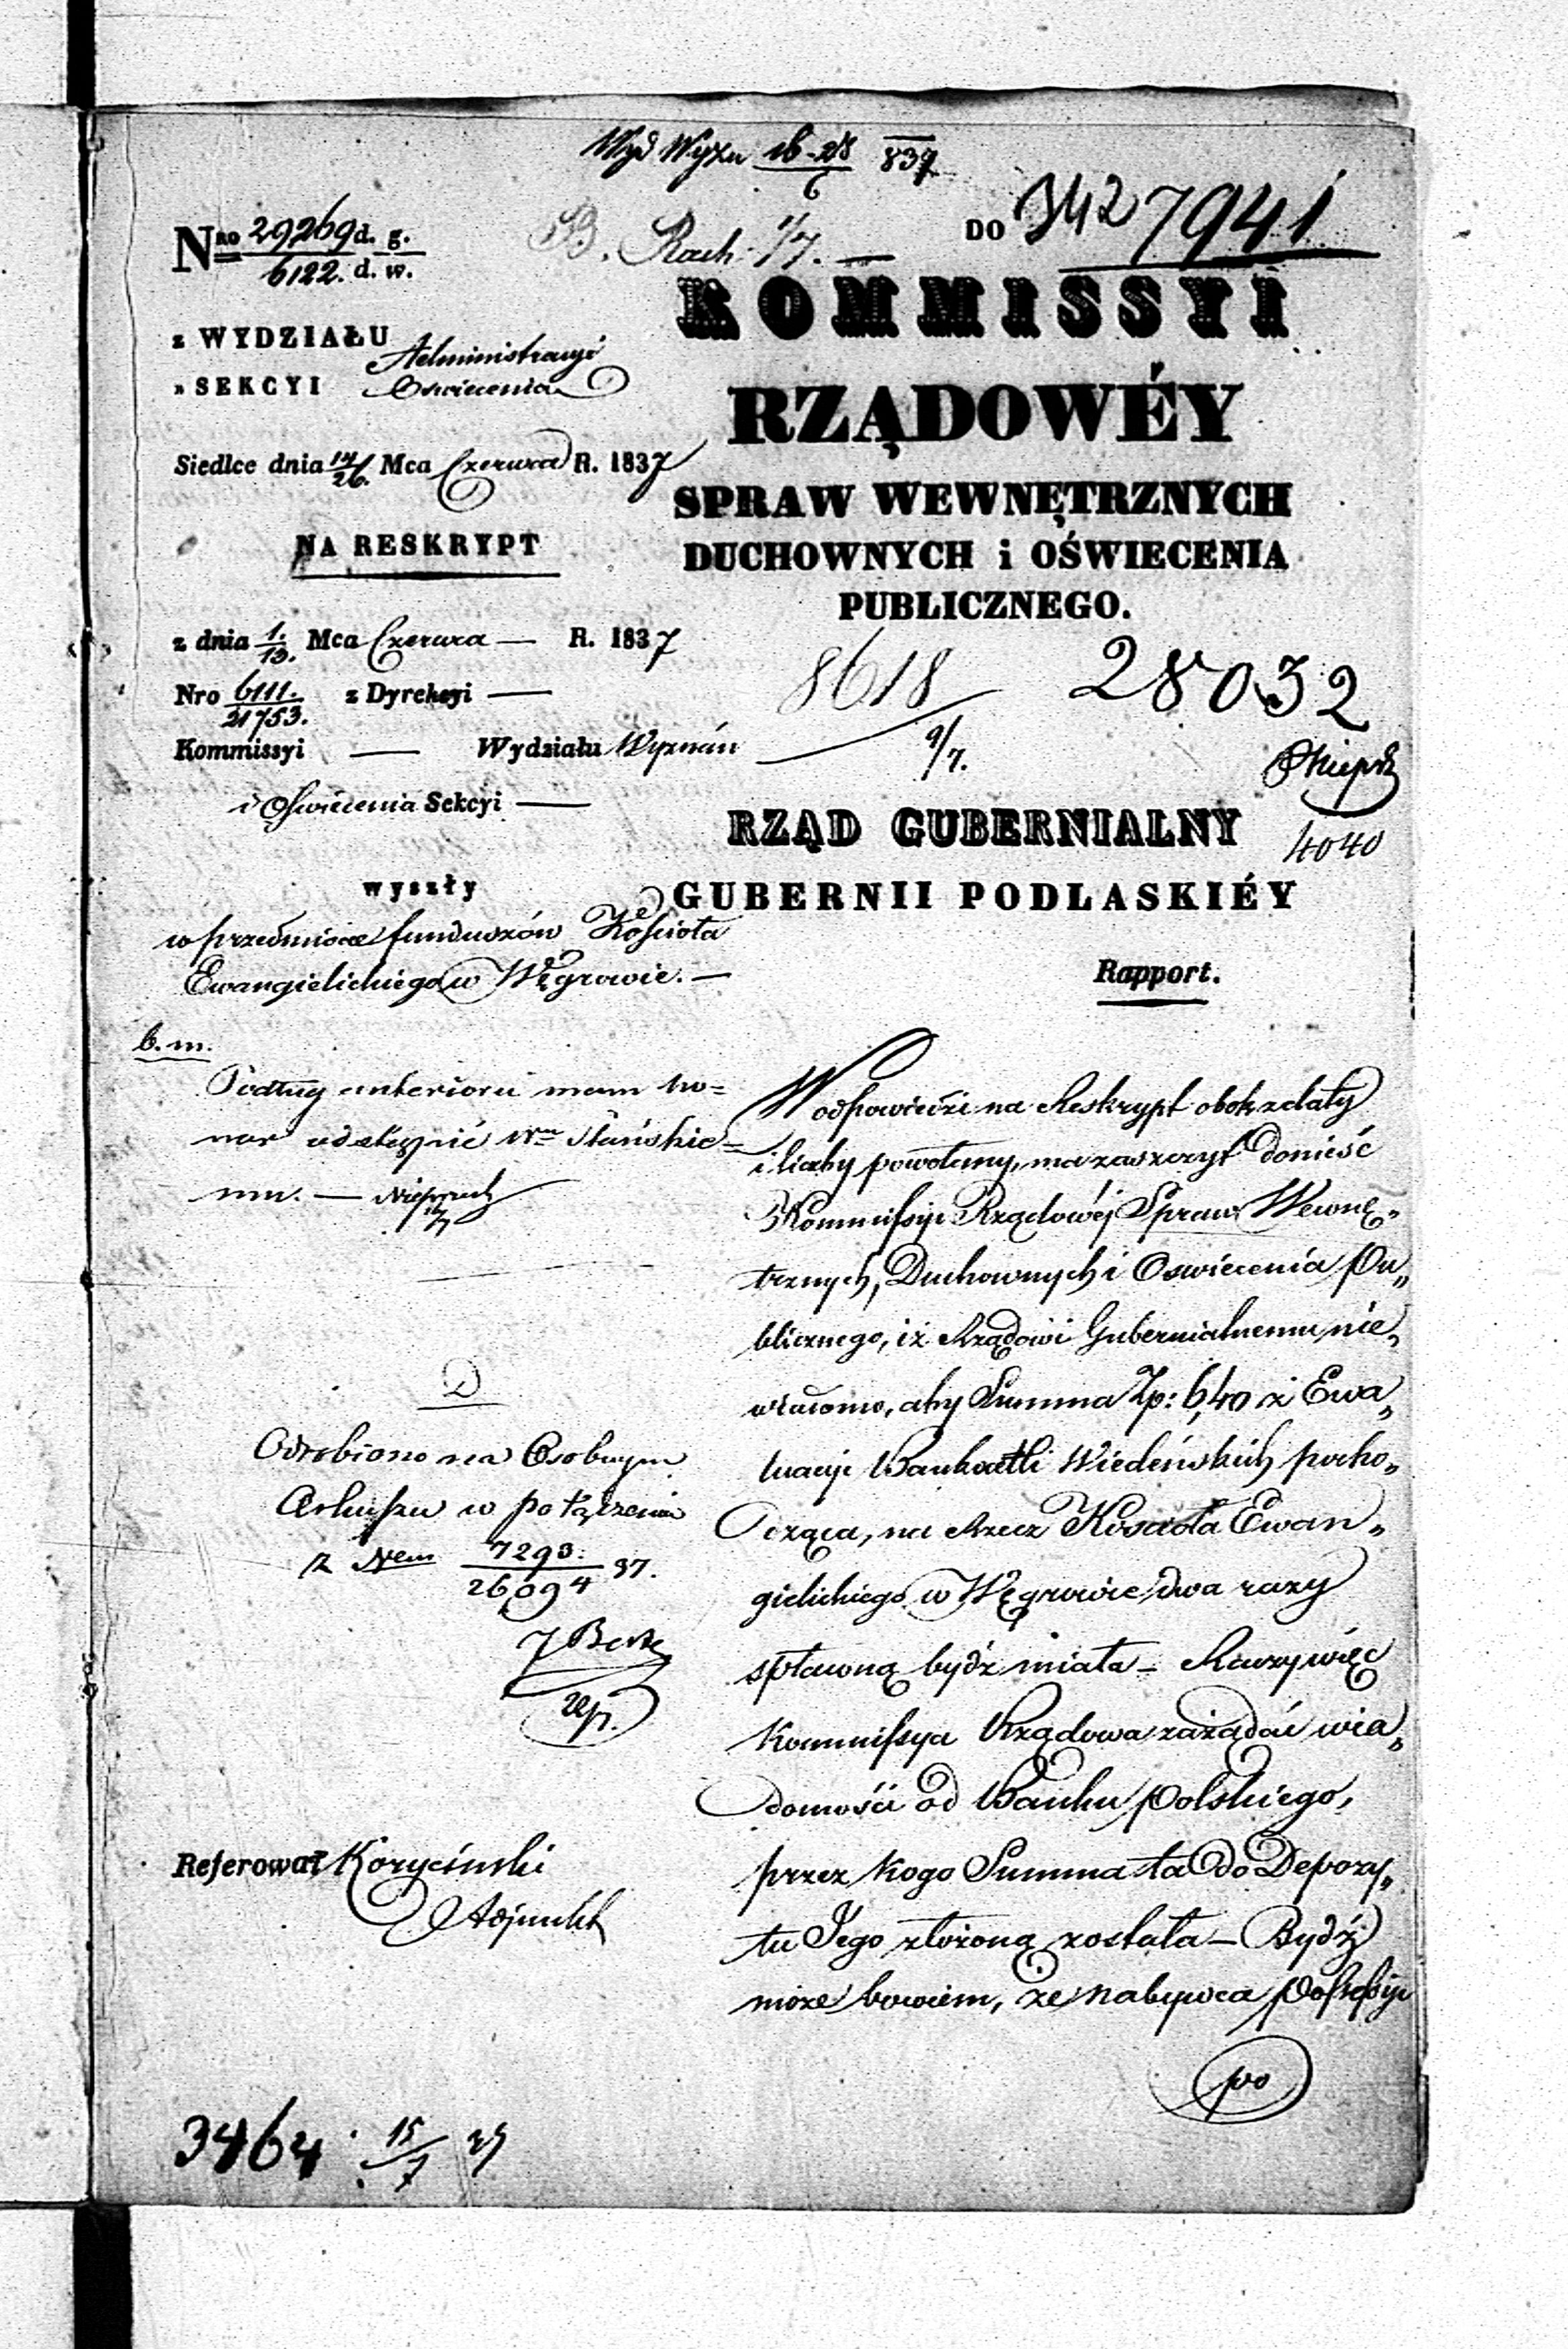 Wyd Wyzn 16-28/6 837
B. Rach. 1/7.
DO 342 7941
Nro 29269 d. g.
6122. d. w.
KOMMISSYI
RZĄDOWÉY
SPRAW WEWNĘTRZNYCH
DUCHOWNYCH i OŚWIECENIA
PUBLICZNEGO.
z WYDZIAŁU Administracyi
» SEKCYI Oswiecenia
Siedlce dnia 14/26. Mca Czerwca R. 1837
NA RESKRYPT
z dnia 1./13. Mca Czerwca — R. 1837
Nro 6111./21753. z Dyrekcyi —
Kommissyi — Wydziału Wyznań
i Oświecenia Sekcyi —
8618
9/7.
28032
4040
wyszły
w przedmiocie funduszów Kościoła
Ewangielickiego w Węgrowie. —
RZĄD GUBERNIALNY
GUBERNII PODLASKIÉY
Rapport.
b. m.
Podług anterioru mam ho=
nor udzielić
mu. —
D
Odrobiono na Osobnym
Arkuszu w połączeniu
z Nem 7293./26094 37.
Referował Koryciński
Adjunkt
W odpowiedzi na Reskrypt obok z daty
i liczby powołany, ma zaszczyt donieść
Kommissyi Rządowéj Spraw Wewnę„
trznych, Duchownych i Oswiecenia Pu„
blicznego, iż Rządowi Gubernialnemu nie„
wiadomo, aby Summa Zp: 6,40 z Ewa„
luacyi Bankocetli Wiedeńskich pocho„
dząca, na Rzecz Kościoła Ewan„
gielickiego w Węgrowie dwa razy
spłaconą bydź miała — Raczy więc
Kommissya Rządowa zażądać wia„
domości od Banku Polskiego,
przez kogo Summa ta do Depozy„
tu Jego złożoną została — Bydź
może bowiem, że nabywca Possessyi
po
3464 15/7 37